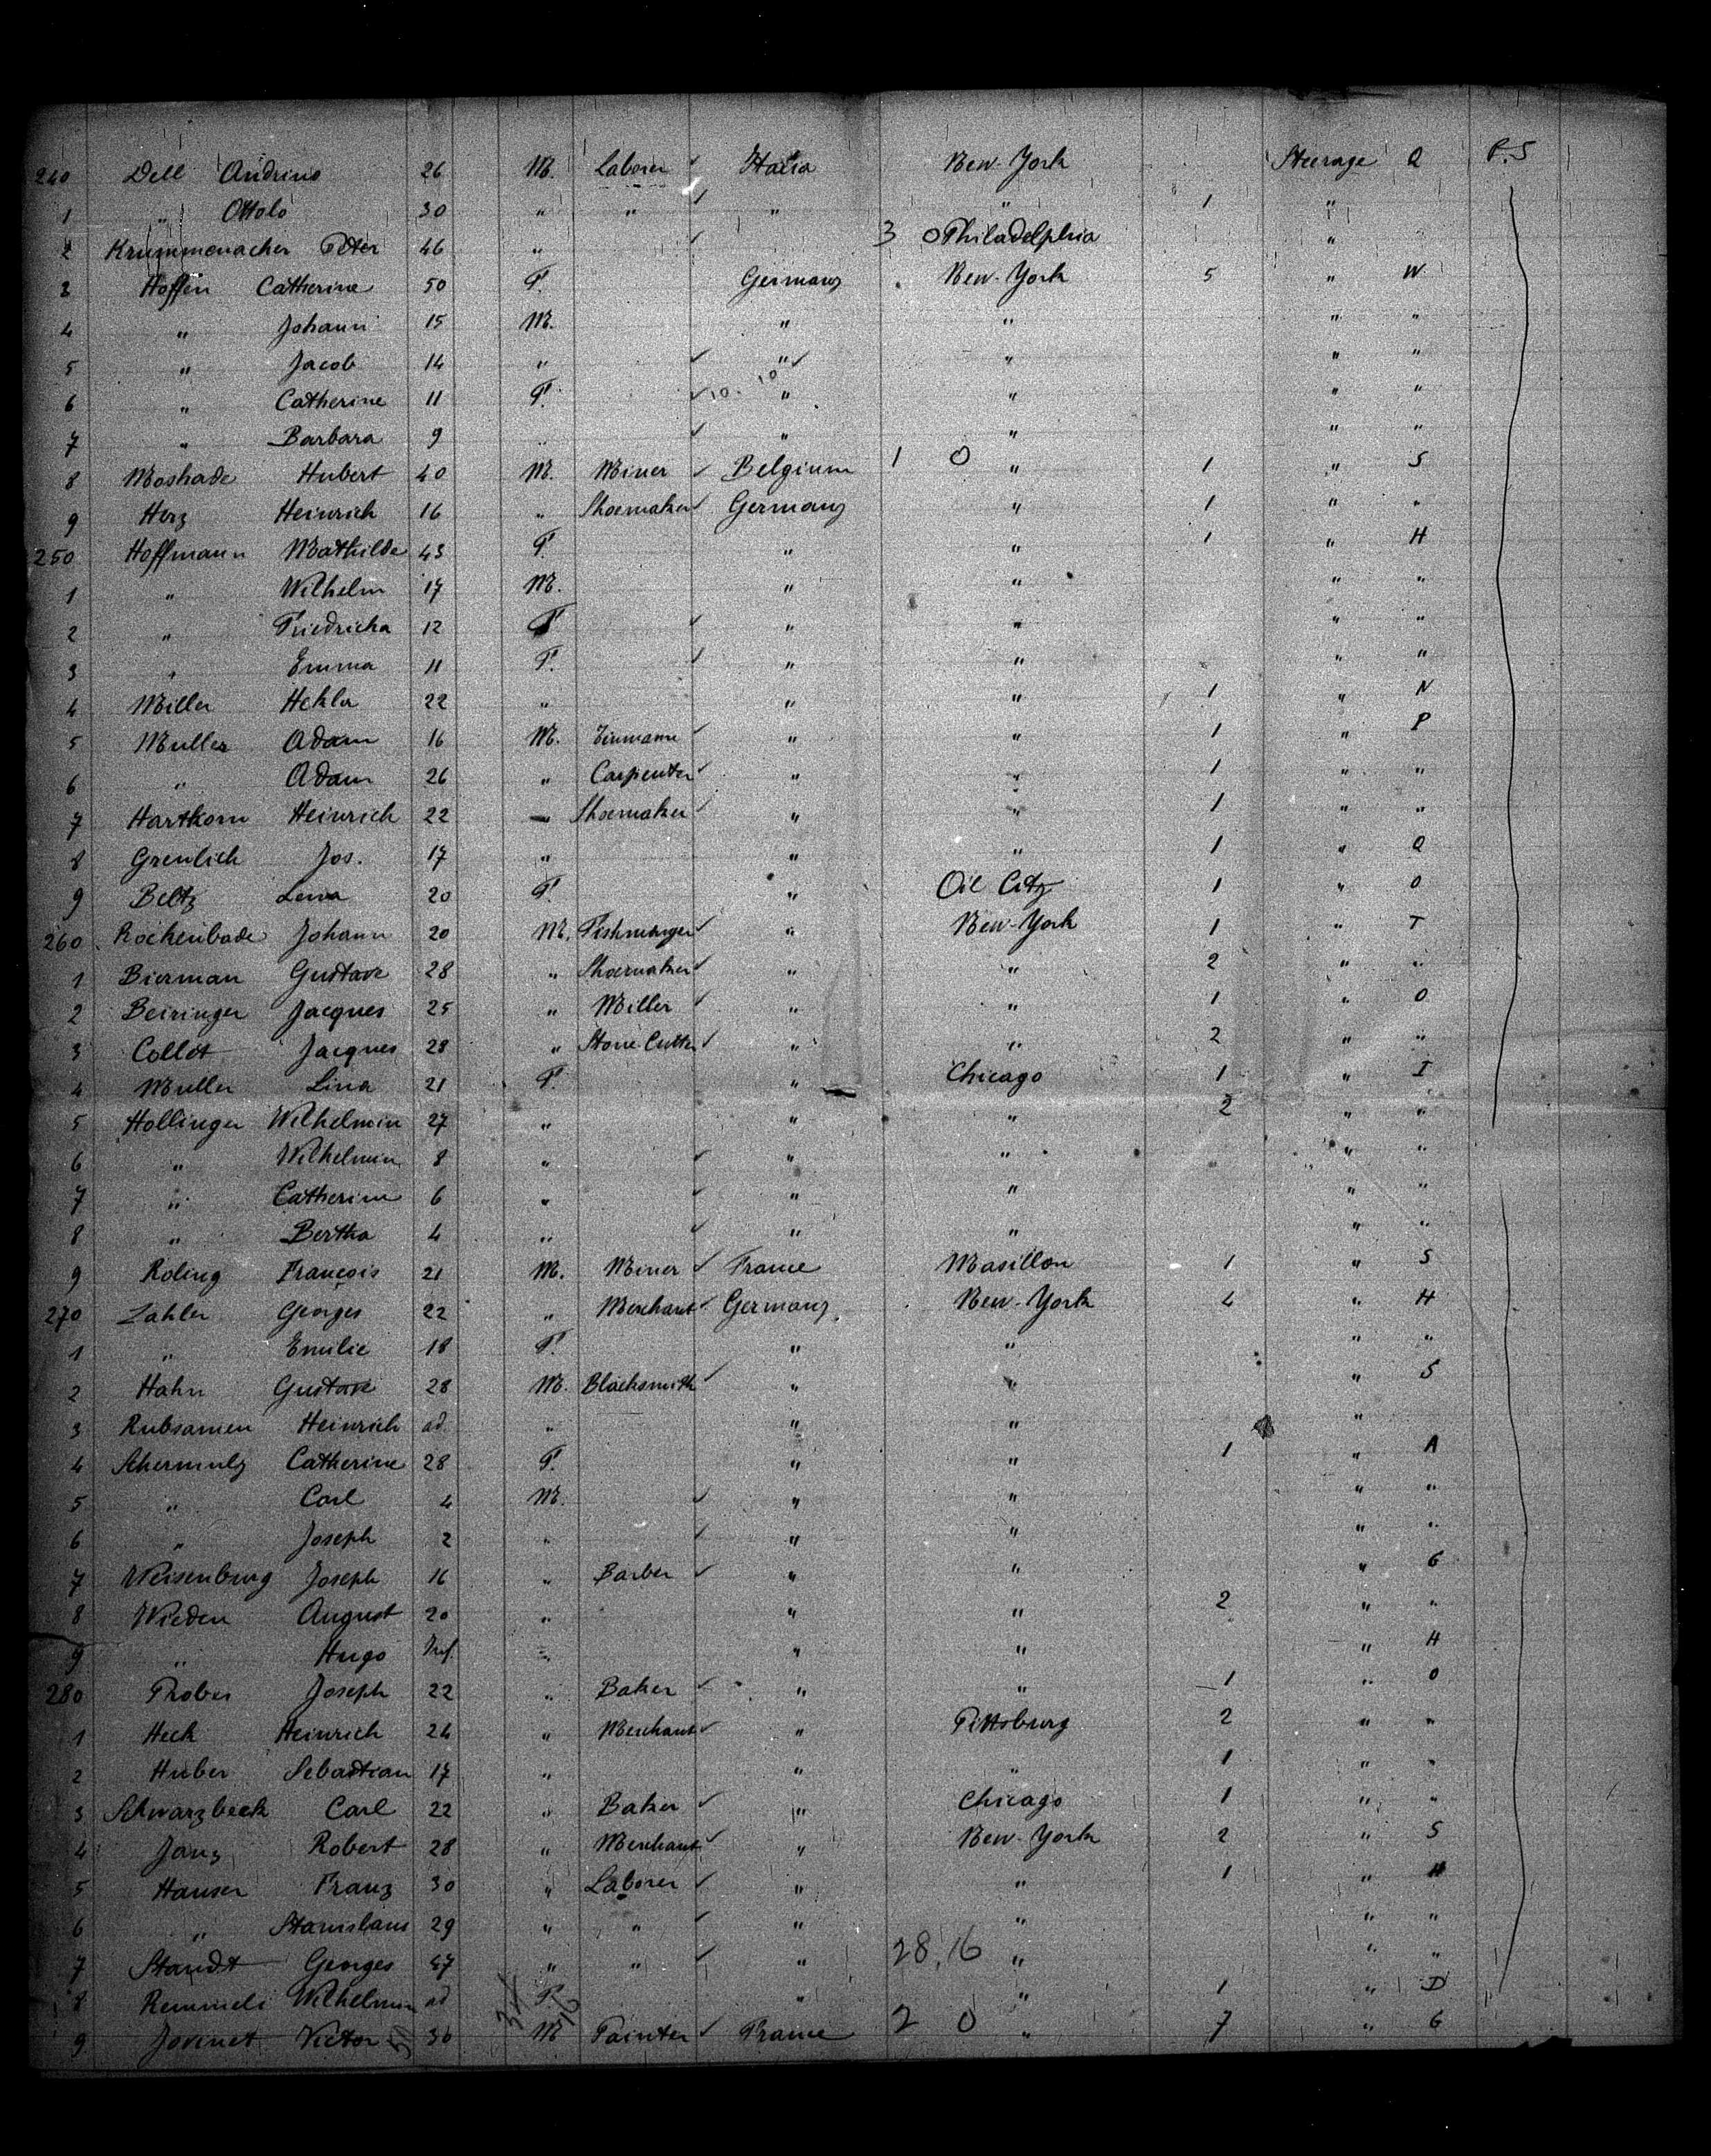 240 Dell Andrino 26 M. Laborer ✓ Italia New-York Steerage Q P.S
1 " Ottolo 30 " " ✓ " " 1 "
2 Krummenacher Peter 46 " ✓ 3 0 Philadelphia "
3 Hoffen Catherine 50 F. Germany New-York 5 " W
4 " Johann 15 M. " " " "
5 " Jacob 14 " ✓ " ✓ " " "
6 " Catherine 11 F. ✓ 10. 10 " " " "
7 " Barbara 9 " ✓ " " " "
8 Moshade Hubert 40 M. Miner ✓ Belgium 1 0 " 1 " S
9 Herz Heinrich 16 " Shoemaker ✓ Germany " 1 " "
250 Hoffmann Mathilde 43 F. " " 1 " H
1 " Wilhelm 17 M. " " " "
2 " Friedricha 12 F ✓ " " " "
3 " Emma 11 F. ✓ " " " "
4 Miller Hekla 22 " " " 1 " N
5 Muller Adam 16 M. ✓ " " 1 " P
6 " Adam 26 " Carpenter ✓ " " 1 " "
7 Hartkorn Heinrich 22 — Shoemaker ✓ " " 1 " "
8 Greulich Jos. 17 " " " 1 " Q
9 Beltz Lena 20 F. " Oil City 1 " O
260 Rockenbade Johann 20 M. Fishmonger ✓ " New-York 1 " T
1 Bierman Gustave 28 " Shoemaker ✓ " " 2 " "
2 Beiringer Jacques 25 " Miller ✓ " " 1 " O
3 Collet Jacques 28 " Stone-Cutter ✓ " " 2 " "
4 Muller Lina 21 F. " Chicago 1 " I
5 Hollinger Wilhelmin 27 " " " 2 " "
6 " Wilhelmin 8 " ✓ " " " "
7 " Catherine 6 " ✓ " " " "
8 " Bertha 4 " ✓ " " " "
9 Roling François 21 M. Miner ✓ France Masillon 1 " S
270 Zahler Georges 22 " Merchant ✓ Germany New-York 4 " H
1 " Emilie 18 F. " " " "
2 Hahn Gustave 28 M. Blacksmith ✓ " " " S
3 Rubsamen Heinrich ad " " " "
4 Schermuly Catherine 28 F. " " 1 " A
5 " Carl 4 M. ✓ " " " "
6 " Joseph 2 " ✓ " " " "
7 Weisenburg Joseph 16 " Barber ✓ " " " G
8 Wieden August 20 " " " 2 " "
9 " Hugo Inf. " " " " H
280 Joseph 22 " Baker ✓ " " 1 " O
1 Heck Heinrich 24 " Merchant ✓ " Pittsburg 2 " "
2 Huber Sebastian 17 " " " 1 " "
3 Schwarzbeck Carl 22 " Baker ✓ " Chicago 1 " "
4 Janz Robert 28 " Merchant ✓ " New-York 2 " S
5 Hauser Franz 30 " Laborer ✓ " " 1 " H
6 " Stanislaus 29 " " ✓ " " " "
7 Staudt Georges 47 " " ✓ " 28,16 " " "
8 Remmeli Wilhelmin ad F. " " 1 " D
9 Jovinet Victor 30 M Painter ✓ France 2 0 " 7 " G